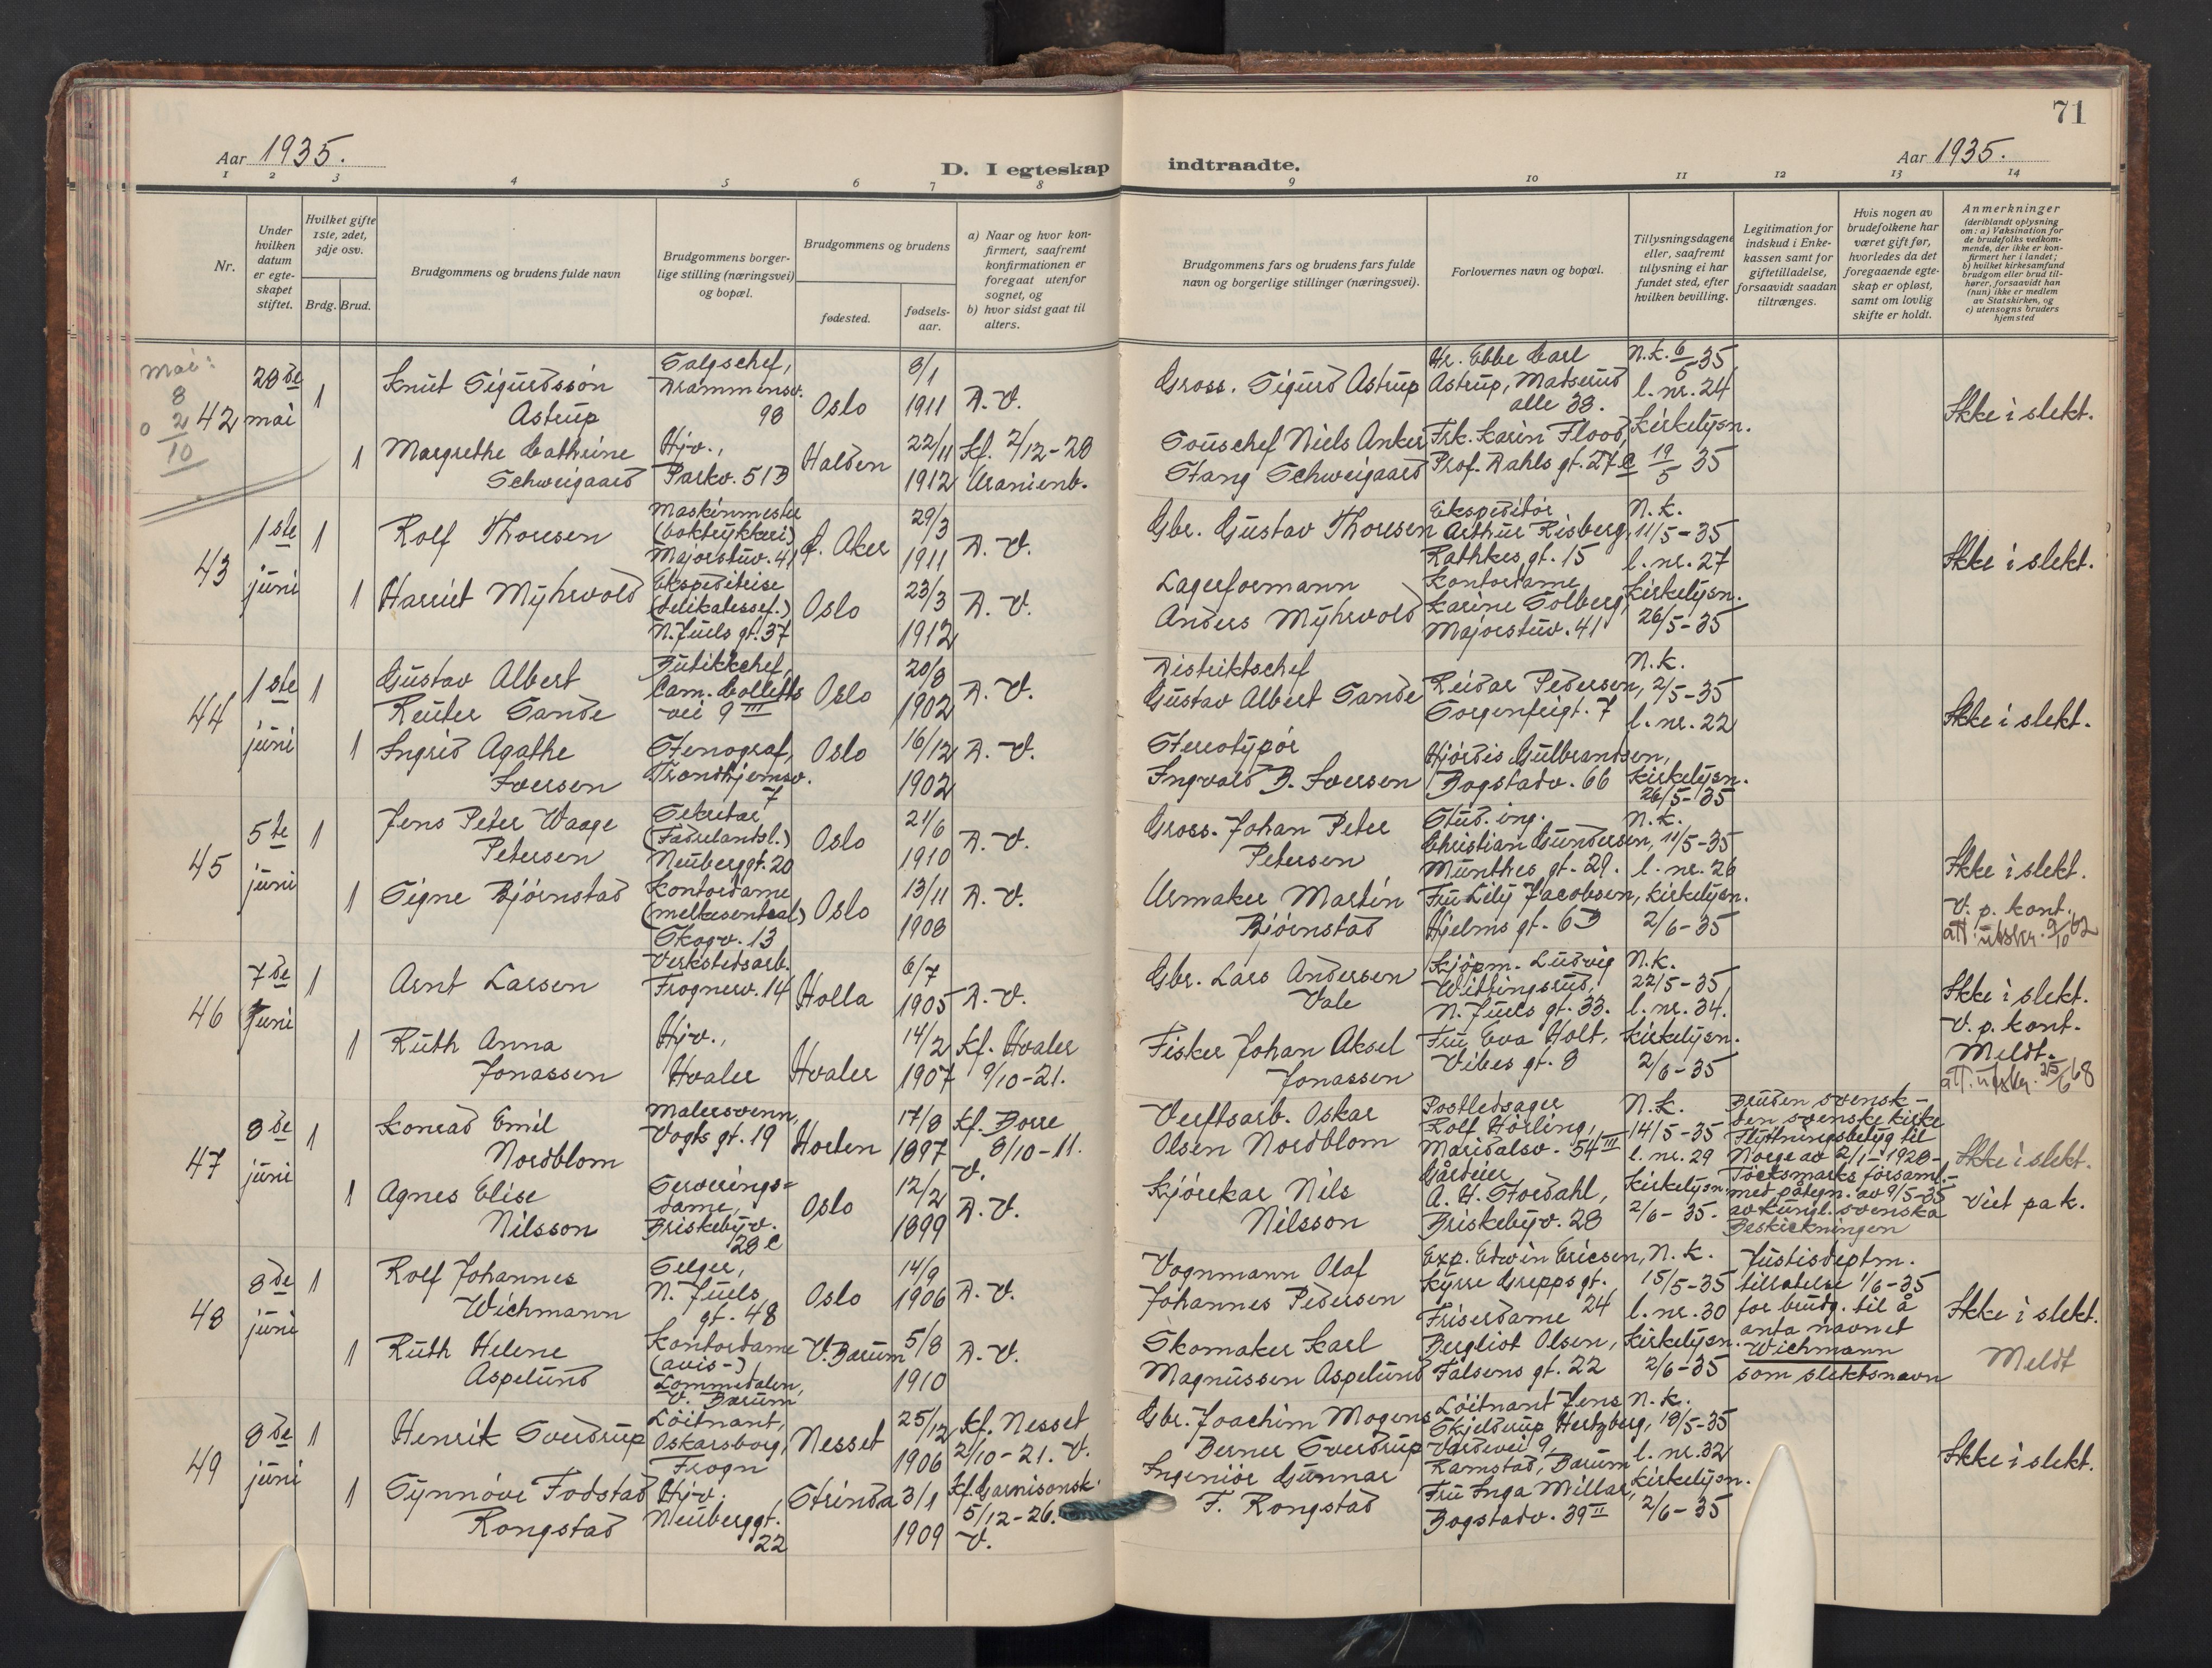 71
Aar 1935.
D. I egteskap indtraadte.
Aar 1935.
1 2 3 4 5 6 7 8 9 10 11 12 13 14
Nr.
Under hvilken datum er egteskapet stiftet.
Hvilket gifte 1ste, 2det, 3dje osv.
Brdg. Brud.
Brudgommens og brudens fulde navn
Brudgommens borgerlige stilling (næringsvei) og bopæl.
Brudgommens og brudens
fødested.
fødselsaar.
a) Naar og hvor konfirmert, saafremt konfirmationen er foregaat utenfor sognet, og
b) hvor sidst gaat til alters.
Brudgommens fars og brudens fars fulde navn og borgerlige stillinger (næringsvei).
Forlovernes navn og bopæl.
Tillysningsdagene eller, saafremt tillysning ei har fundet sted, efter hvilken bevilling.
Legitimation for indskud i Enkekassen samt for giftetilladelse, forsaavidt saadan tiltrænges.
Hvis nogen av brudefolkene har været gift før, hvorledes da det foregaaende egteskap er opløst, samt om lovlig skifte er holdt.
Anmerkninger
(deriblandt oplysning om: a) Vaksination for de brudefolks vedkommende, der ikke er konfirmert her i landet;
b) hvilket kirkesamfund brudgom eller brud tilhører, forsaavidt han (hun) ikke er medlem av Statskirken, og
c) utensogns bruders hjemsted
Mai:
8
2
10
42
28de mai
1
Knut Sigurdssøn Astrup
Salgschef, Drammensv. 98
Oslo
8/1 1911
D. V.
Gross. Sigurd Astrup
Hr. Ebbe Carl Astrup, Madserud alle 38.
N.k. 6/5-35 l. nr. 24
Ikke i slekt.
1
Margrethe Cathrine Schweigaard
Hjv., Parkv. 51B
Halden
22/11 1912
Kf. 2/12-28 Uranienb.
Souschef Niels Anker Stang Schweigaard
Frk. Karin Flood, Prof. Dahls gt. 27 C
Kirkelysn. 19/5 35
43
1ste juni
1
Rolf Thoresen
Maskinmester (boktrykkeri) Majorstuv. 41
Ø. Aker
29/3 1911
D. V.
Gbr. Gustav Thoresen
Ekspeditør Arthur Risberg, Rathkes gt. 15
N.k. 11/5-35 l. nr. 27
Ikke i slekt.
1
Harriet Myhrvold
Ekspeditrise (delikatessef.) N. Juels gt. 37
Oslo
23/3 1912
D. V.
Lagerformann Anders Myhrvold
Kontordame Karine Solberg, Majorstuv. 41
Kirkelysn. 26/5-35
44
1ste juni
1
Gustav Albert Reuter Sande
Butikkchef, Cam. Colletts vei 9 III
Oslo
20/8 1902
D. V.
Distriktschef Gustav Albert Sande
Reidar Pedersen, Sorgenfrigt. 7
N.k. 2/5-35 l. nr. 22
Ikke i slekt.
1
Ingrid Agathe Iversen
Stenograf, Trondhjemsv. 7
Oslo
16/12 1902
D. V.
Stereotypør Ingvald B. Iversen
Hjørdis Gulbrandsen, Bogstadv. 66
Kirkelysn. 26/5-35
45
5te juni
1
Jens Peter Waage Petersen
Sekretær (Fædrelandsl.) Neuberggt. 20
Oslo
21/6 1910
D. V.
Gross. Johan Peter Petersen
Stud. ing. Christian Gundersen, Munthes gt. 29.
N.k. 11/5-35 l. nr. 26
Ikke i slekt.
V. p. kont.
att. utskr. 9/10 62
1
Signe Bjørnstad
Kontordame (melkesentral) Skogv. 13
Oslo
13/11 1908
D. V.
Urmaker Martin Bjørnstad
Fru Lily Jacobsen, Hjelms gt. 6B
Kirkelysn. 2/6-35
46
7de juni
1
Arnt Larsen
Verkstedsarb. Frognerv. 14
Holla
6/7 1905
D. V.
Gbr. Lars Andersen Vale
Kjøpm. Ludvig Wittingsrud, N. Juels gt. 33.
N.k. 22/5-35 l. nr. 34.
Ikke i slekt.
V. p. kont.
Meldt.
att. utskr. 25/6 68
1
Ruth Anna Jonassen
Hjv., Hvaler
Hvaler
14/2 1907
Kf. Hvaler 9/10-21.
Fisker Johan Aksel Jonassen
Fru Eva Holt, Vibes gt. 8
Kirkelysn. 2/6-35
47
8de juni
1
Konrad Emil Nordblom
Malersvenn, Vogts gt. 19
Horten
17/8 1897
Kf. Borre 8/10-11. V.
Verftsarb. Oskar Olsen Nordblom
Postledsager Rolf Hørling, Maridalsv. 54 III
N.k. 14/5-35 l. nr. 29
Bruden svensk - den svenske kirke Flyttningsbetyg til Norge av 2/1-1928 - Töcksmarks församl.- med påtegn. av 9/5-35 av Kungl. svenska Beskickningen
Ikke i slekt.
Viet på k.
1
Agnes Elise Nilsson
Serveringsdame, Briskebyv. 28 C
Oslo
12/2 1899
D. V.
Kjørekar Nils Nilsson
Gårdeier A. H. Stordahl, Briskebyv. 28
Kirkelysn. 2/6-35.
48
8de juni
1
Rolf Johannes Wichmann
Selger, N. Juels gt. 48
Oslo
14/9 1906
D. V.
Vognmann Olaf Johannes Pedersen
Exp. Edwin Ericsen, Kyrre Grepps gt. 24
N.k. 15/5-35 l. nr. 30
Justisdeptm. tillatelse 1/6-35 for brudg. til å anta navnet Wichmann som slektsnavn
Ikke i slekt.
Meldt
1
Ruth Helene Aspelund
Kontordame (avis-) Lommedalen, V. Bærum
V. Bærum
5/8 1910
D. V.
Skomaker Karl Magnussen Aspelund
Friserdame Bergliot Olsen, Falsens gt. 22
Kirkelysn. 2/6-35
49
8de juni
1
Henrik Sverdrup
Løitnant, Oskarsborg, Frogn
Nesset
25/12 1906
Kf. Nesset 2/10-21. V.
Gbr. Joachim Mogens Berner Sverdrup
Løitnant Jens Skjelderup Hertzberg, Vardevei 9, Ramstad, Bærum
N.k. 18/5-35 l. nr. 32
Ikke i slekt.
1
Synnøve Fodstad Rongstad
Hjv. Neuberggt. 22
Strinda
3/1 1909
Kf. Garnisonsk. 5/12-26. V.
Ingeniør Gunnar F. Rongstad
Fru Inga Millar, Bogstadv. 39 II
Kirkelysn. 2/6-35